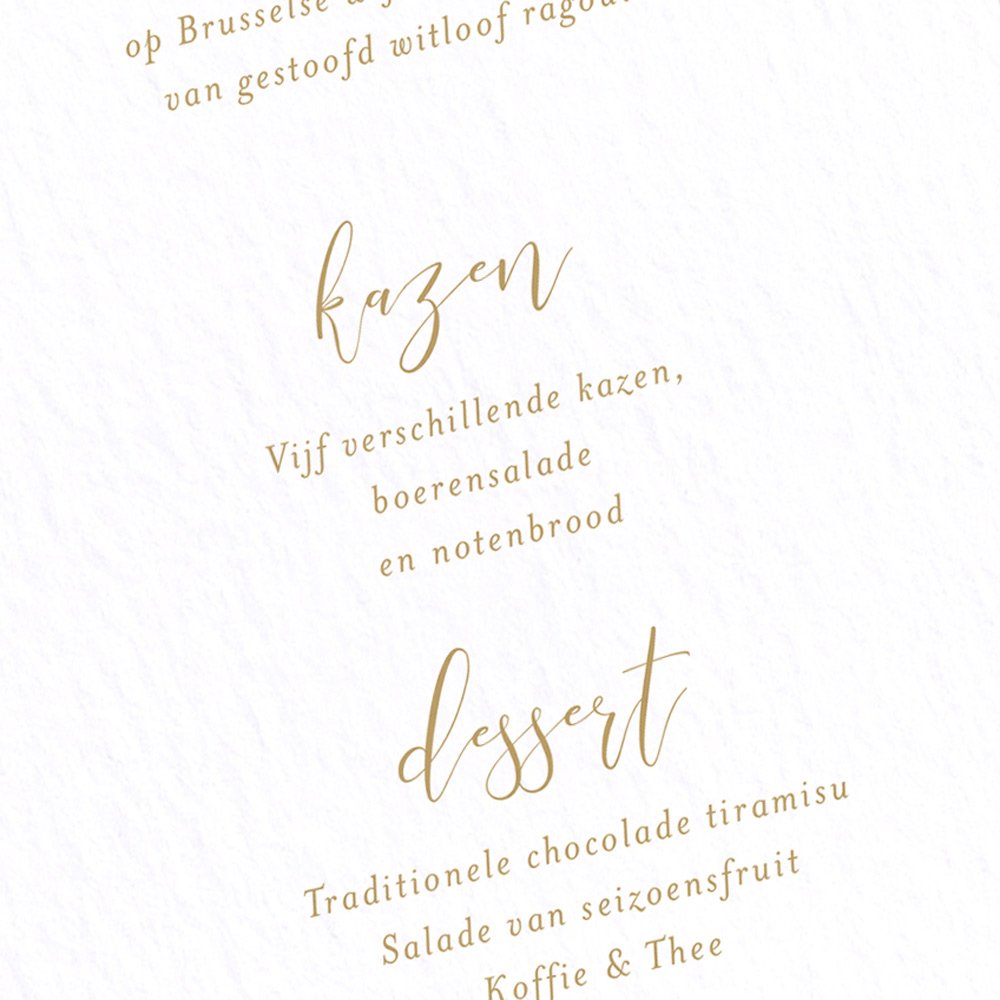 op Brusselse
van gestoofd witloof
kazen
Vijf verschillende kazen,
boerensalade
en notenbrood
dessert
Traditionele chocolade tiramisu
Salade van seizoensfruit
Koffie & Thee